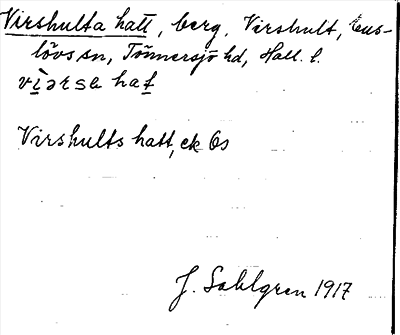 Virshulta hatt, berg, Virshult, Ens-
lövs sn, Tönnersjö hd, Hall. l.
Virshults hatt, ek Gs
J. Sahlgren 1917